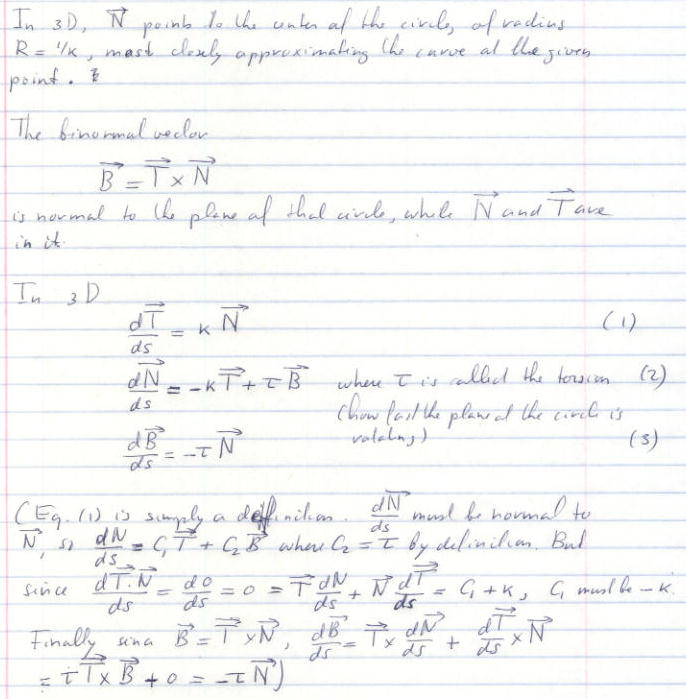 In 3D, N⃗ points to the center of the circle, of radius
R = 1/κ, most closely approximating the curve at the given
point.
The binormal vector
B⃗ = T⃗ × N⃗
is normal to the plane of that circle, while N⃗ and T⃗ are
in it.
In 3D
dT⃗/ds = κ N⃗ (1)
dN⃗/ds = -κT⃗ + τB⃗ where τ is called the torsion (2)
(how fast the plane of the circle is
rotating)
dB⃗/ds = -τN⃗ (3)
(Eq. (1) is simply a definition. dN⃗/ds must be normal to
N⃗, so dN/ds = C₁T⃗ + C₂B⃗ where C₂ = τ by definition. But
since dT⃗·N⃗/ds = d0/ds = 0 = T⃗ dN⃗/ds + N⃗ dT⃗/ds = C₁ + κ, C₁ must be -κ.
Finally since B⃗ = T⃗ × N⃗, dB⃗/ds = T⃗ × dN⃗/ds + dT⃗/ds × N⃗
= τT⃗ × B⃗ + 0 = -τN⃗)